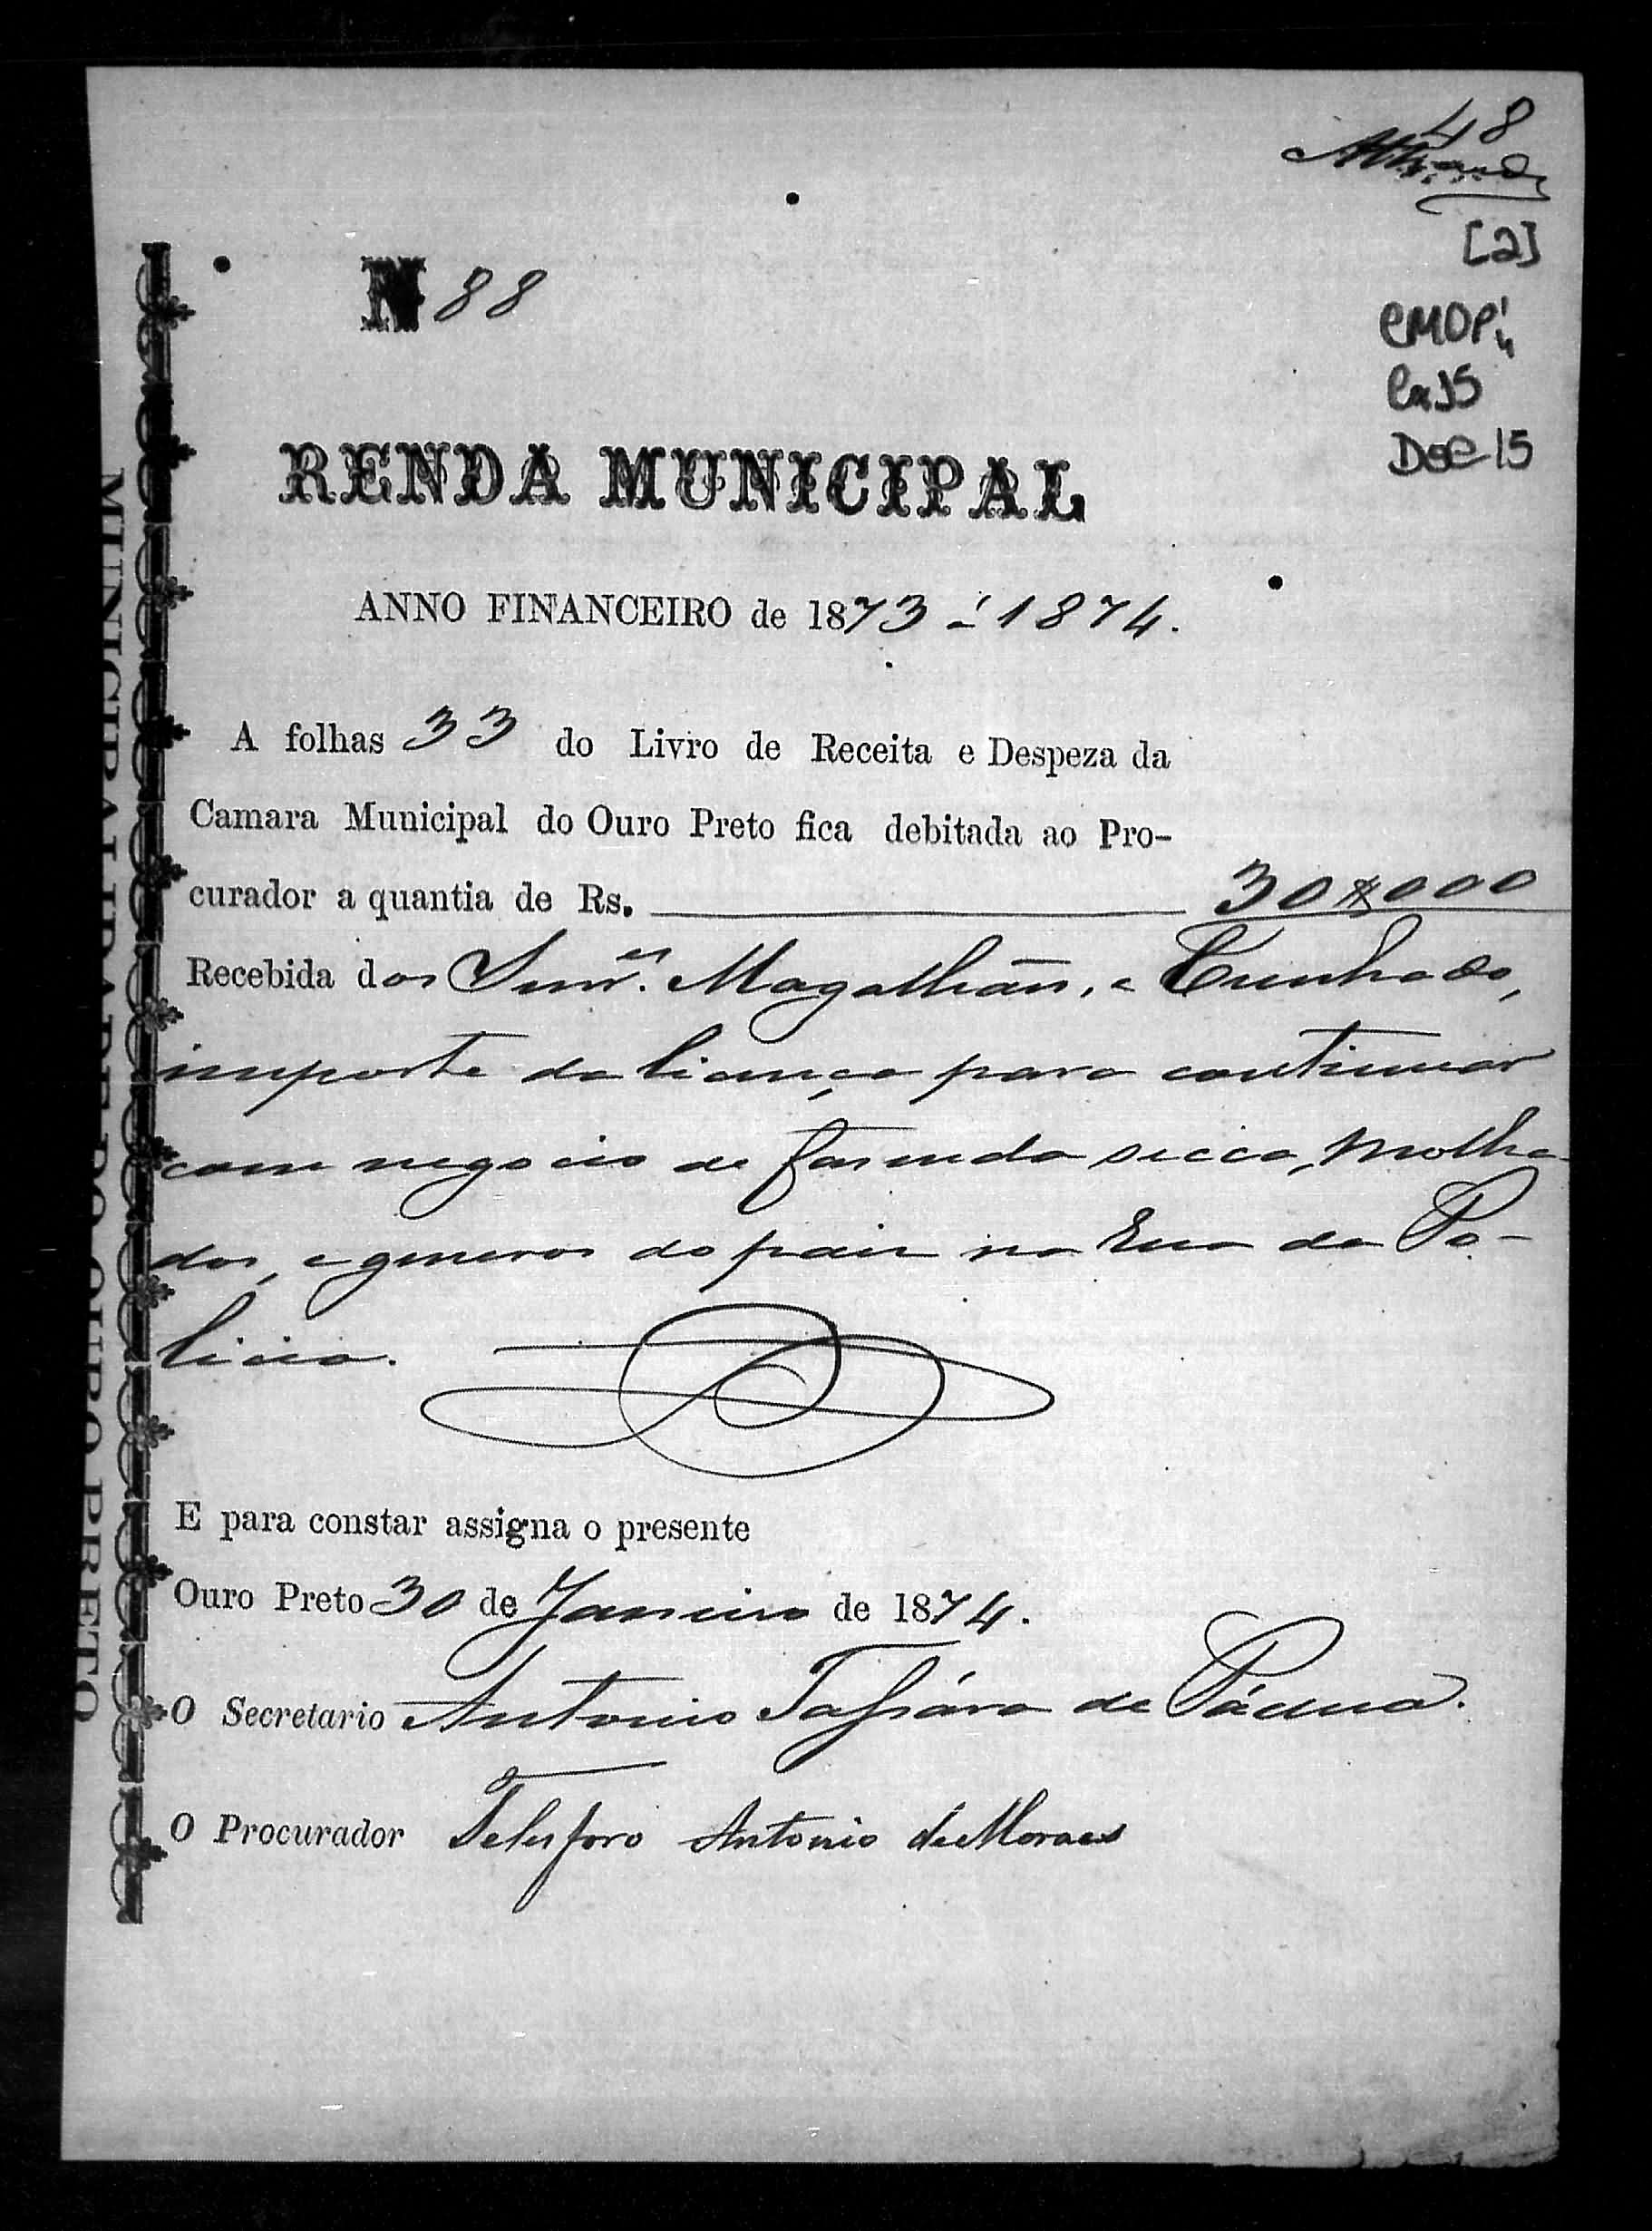 48
[2]
CMOP 1/4
Cx 15
Doc 15
N 88
RENDA MUNICIPAL
ANNO FINANCEIRO de 1873 a 1874.
A folhas 33 do Livro de Receita e Despeza da
Camara Municipal do Ouro Preto fica debitada ao Pro-
curador a quantia de Rs. 30$000
Recebida dos Snr.es Magalhães, e Cunhado,
importe da licença para continuar
com negocio de fasenda secca, molha-
dos, e generos do pais na Rua da Po-
licia.
E para constar assigna o presente
Ouro Preto 30 de Janeiro de 1874.
O Secretario Antonio Tassára de Pádua.
O Procurador Telesforo Antonio de Moraes
MUNICIPALIDADE DO OURO PRETO